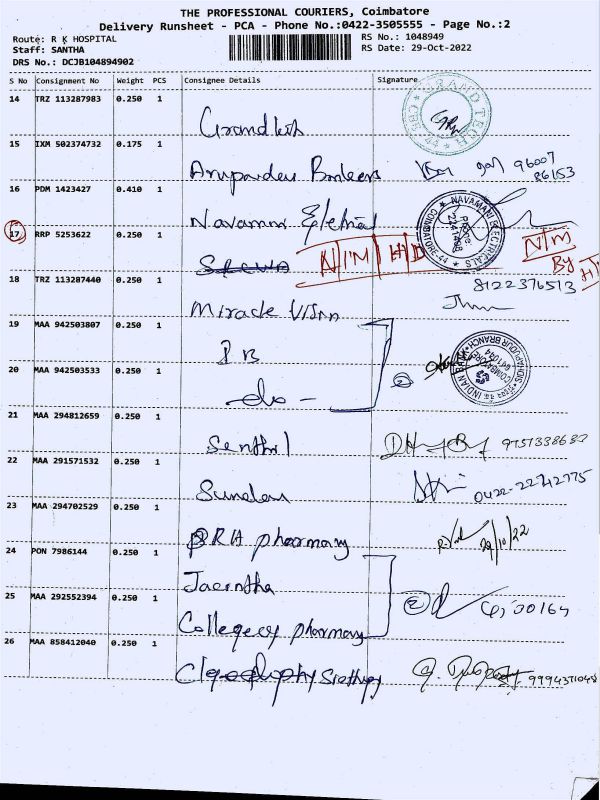 THE PROFESSIONAL COURIERS, Coimbatore
Delivery Runsheet - PCA - Phone No.:0422-3505555 - Page No.:2
Route: R K HOSPITAL
RS No.: 1048949
Staff: SANTHA
RS Date: 29-Oct-2022
DRS No.: DCJB104894902
S No Consignment No Weight PCS Consignee Details Signature
14 TRZ 113287983 0.250 1
GRAND TECH
15 IXM 502374732 0.175 1
96007
86153
16 PDM 1423427 0.410 1
Navamani
NAVAMANI ELECTRICALS
17 RRP 5253622 0.250 1
N/M H/D
N/M
By
18 TRZ 113287440 0.250 1
8122376513
Miracle Vision
19 MAA 942503807 0.250 1
I B
INDIAN BANK
20 MAA 942503533 0.250 1
2
-do-
21 MAA 294812659 0.250 1
Senthil
22 MAA 291571532 0.250 1
0422-2242775
Sundar
23 MAA 294702529 0.250 1
PRH pharmacy
29/10/22
24 PON 7986144 0.250 1
Jacintha
25 MAA 292552394 0.250 1
2
College of pharmacy
26 MAA 858412040 0.250 1